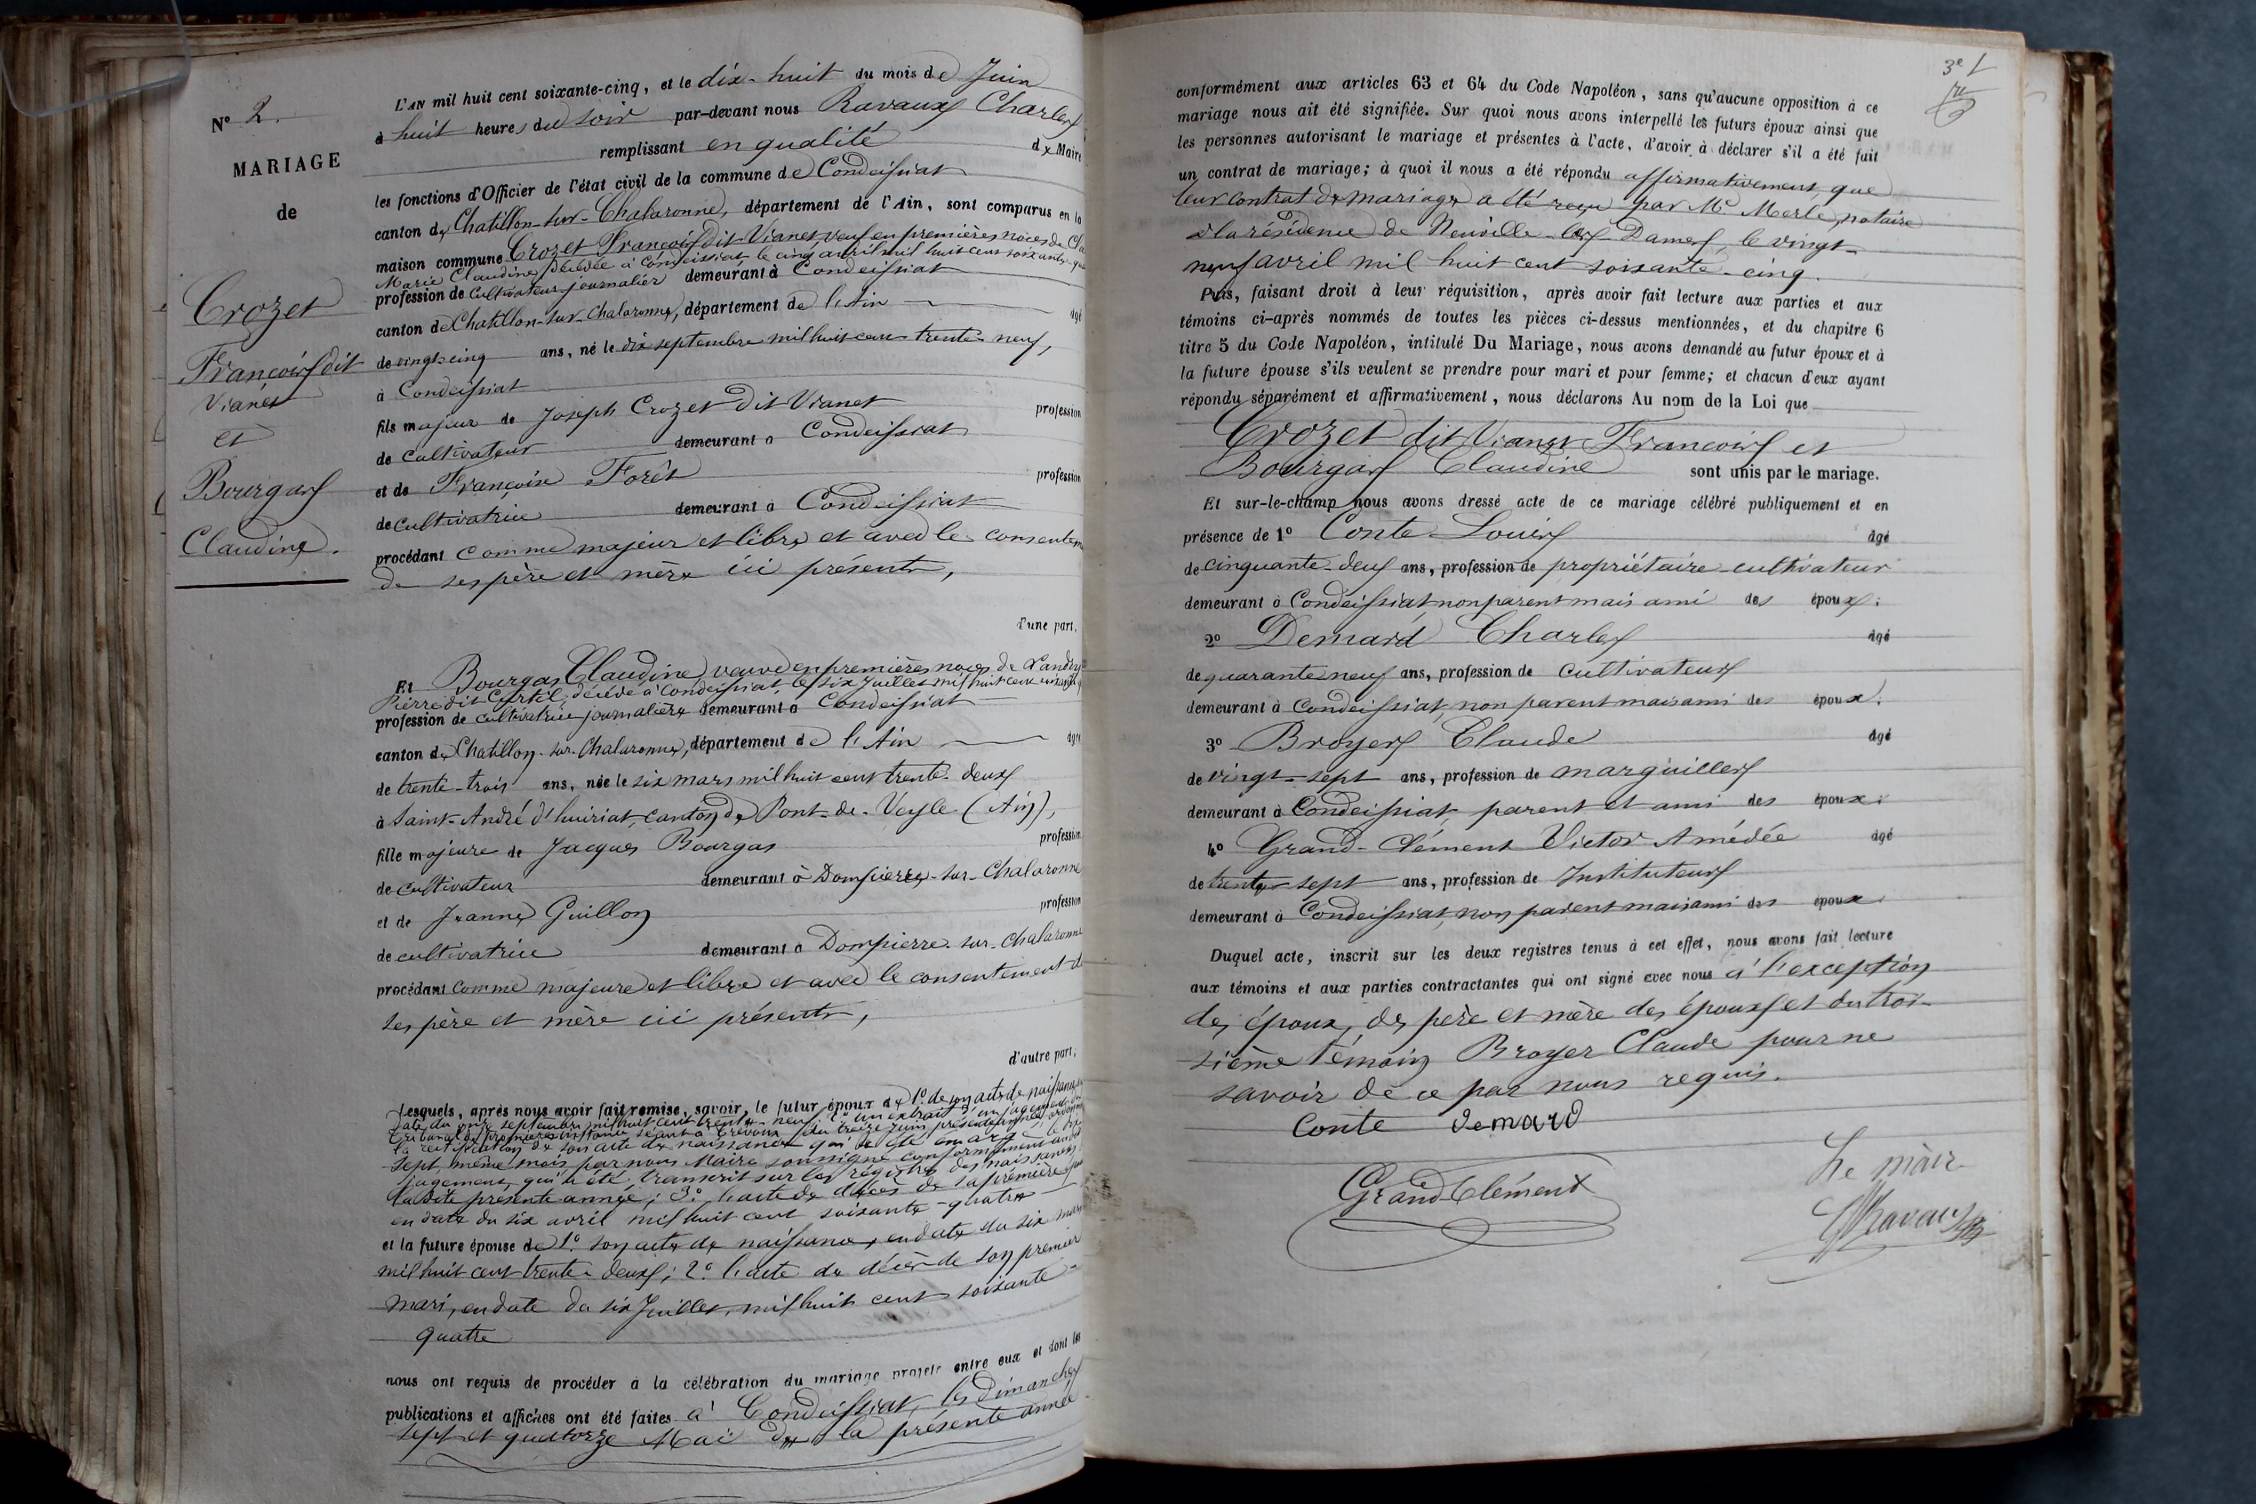 N° 2.
MARIAGE
de
Crozet
François dit
Vianet
et
Bourgas
Claudine.
L'AN mil huit cent soixante-cinq, et le dix-huit du mois de Juin
à huit heures du soir par-devant nous Ravaux Charles
remplissant en qualité de Maire
les fonctions d'Officier de l'état civil de la commune de Condeissiat
canton de Chatillon-sur-Chalaronne, département de l'Ain, sont comparus en la
maison commune Crozet François dit Vianet, veuf en premières noces de
Marie Claudine, décédée à Condeissiat le cinq avril mil huit cent soixante
profession de cultivateur journalier demeurant à Condeissiat
canton de Chatillon-sur-Chalaronne, département de l'Ain âgé
de vingt-cinq ans, né le dix septembre mil huit cent trente neuf,
à Condeissiat
fils majeur de Joseph Crozet dit Vianet profession
de cultivateur demeurant à Condeissiat
et de Françoise Forêt profession
de cultivatrice demeurant à Condeissiat
procédant comme majeur et libre et avec le consentem
de ses père et mère ici présents,
d'une part,
Et Bourgas Claudine, veuve en premières noces de
Pierre dit Curtil, décédé à Condeissiat, le six Juillet mil huit cent
profession de cultivatrice journalière demeurant à Condeissiat
canton de Chatillon-sur-Chalaronne, département de l'Ain âgée
de trente-trois ans, née le six mars mil huit cent trente-deux
à Saint-André d'huiriat, canton de Pont-de-Veyle (Ain),
fille majeure de Jacques Bourgas profession
de cultivateur demeurant à Dompierre-sur-Chalaronne
et de Jeanne Guillon profession
de cultivatrice demeurant à Dompierre-sur-Chalaronne
procédant comme majeure et libre et avec le consentement de
ses père et mère ici présents,
d'autre part;
Lesquels, après nous avoir fait remise, savoir, le futur époux de 1° de son acte de naissance
date du onze septembre mil huit cent trente-neuf; 2° un extrait d'un jugement du
tribunal de première instance séant à Trévoux du treize Juin présente année,
la rectification de son acte de naissance qui a été
sept même mois, par nous Maire soussigné conformément
jugement, qui a été transcrit sur les registres des naissances
ladite présente année; 3° l'acte de décès de sa première
en date du six avril mil huit cent soixante-quatre
et la future épouse de 1° son acte de naissance, en date du six mars
mil huit cent trente-deux; 2° l'acte de décès de son premier
mari, en date du six Juillet, mil huit cent soixante-
quatre
nous ont requis de procéder à la célébration du mariage projeté entre eux et dont les
publications et affiches ont été faites à Condeissiat, les dimanches
sept et quatorze Mai de la présente année
3e
conformément aux articles 63 et 64 du Code Napoléon, sans qu'aucune opposition à ce
mariage nous ait été signifiée. Sur quoi nous avons interpellé les futurs époux ainsi que
les personnes autorisant le mariage et présentes à l'acte, d'avoir à déclarer s'il a été fait
un contrat de mariage; à quoi il nous a été répondu affirmativement, que
leur contrat de mariage a été reçu par Me Merle, notaire
à la résidence de Neuville-les-Dames, le vingt-
neuf avril mil huit cent soixante-cinq.
Puis, faisant droit à leur réquisition, après avoir fait lecture aux parties et aux
témoins ci-après nommés de toutes les pièces ci-dessus mentionnées, et du chapitre 6
titre 5 du Code Napoléon, intitulé Du Mariage, nous avons demandé au futur époux et à
la future épouse s'ils veulent se prendre pour mari et pour femme; et chacun d'eux ayant
répondu séparément et affirmativement, nous déclarons Au nom de la Loi que
Crozet dit Vianet François et
Bourgas Claudine sont unis par le mariage.
Et sur-le-champ nous avons dressé acte de ce mariage célébré publiquement et en
présence de 1° Conte Louis âgé
de cinquante-deux ans, profession de propriétaire-cultivateur
demeurant à Condeissiat, non parent mais ami des époux;
2° Demard Charles âgé
de quarante neuf ans, profession de cultivateur
demeurant à Condeissiat, non parent mais ami des époux;
3° Broyer Claude âgé
de vingt-sept ans, profession de marguiller
demeurant à Condeissiat, parent et ami des époux;
4° Grand-Clément Victor Amédée âgé
de trente-sept ans, profession de Instituteur
demeurant à Condeissiat, non parent mais ami des époux.
Duquel acte, inscrit sur les deux registres tenus à cet effet, nous avons fait lecture
aux témoins et aux parties contractantes qui ont signé avec nous à l'exception
des époux, des père et mère des époux et du troi-
sième témoin Broyer Claude pour ne
savoir de ce par nous requis.
Conte Demard
Grand-Clément
Le maire
Ravaux